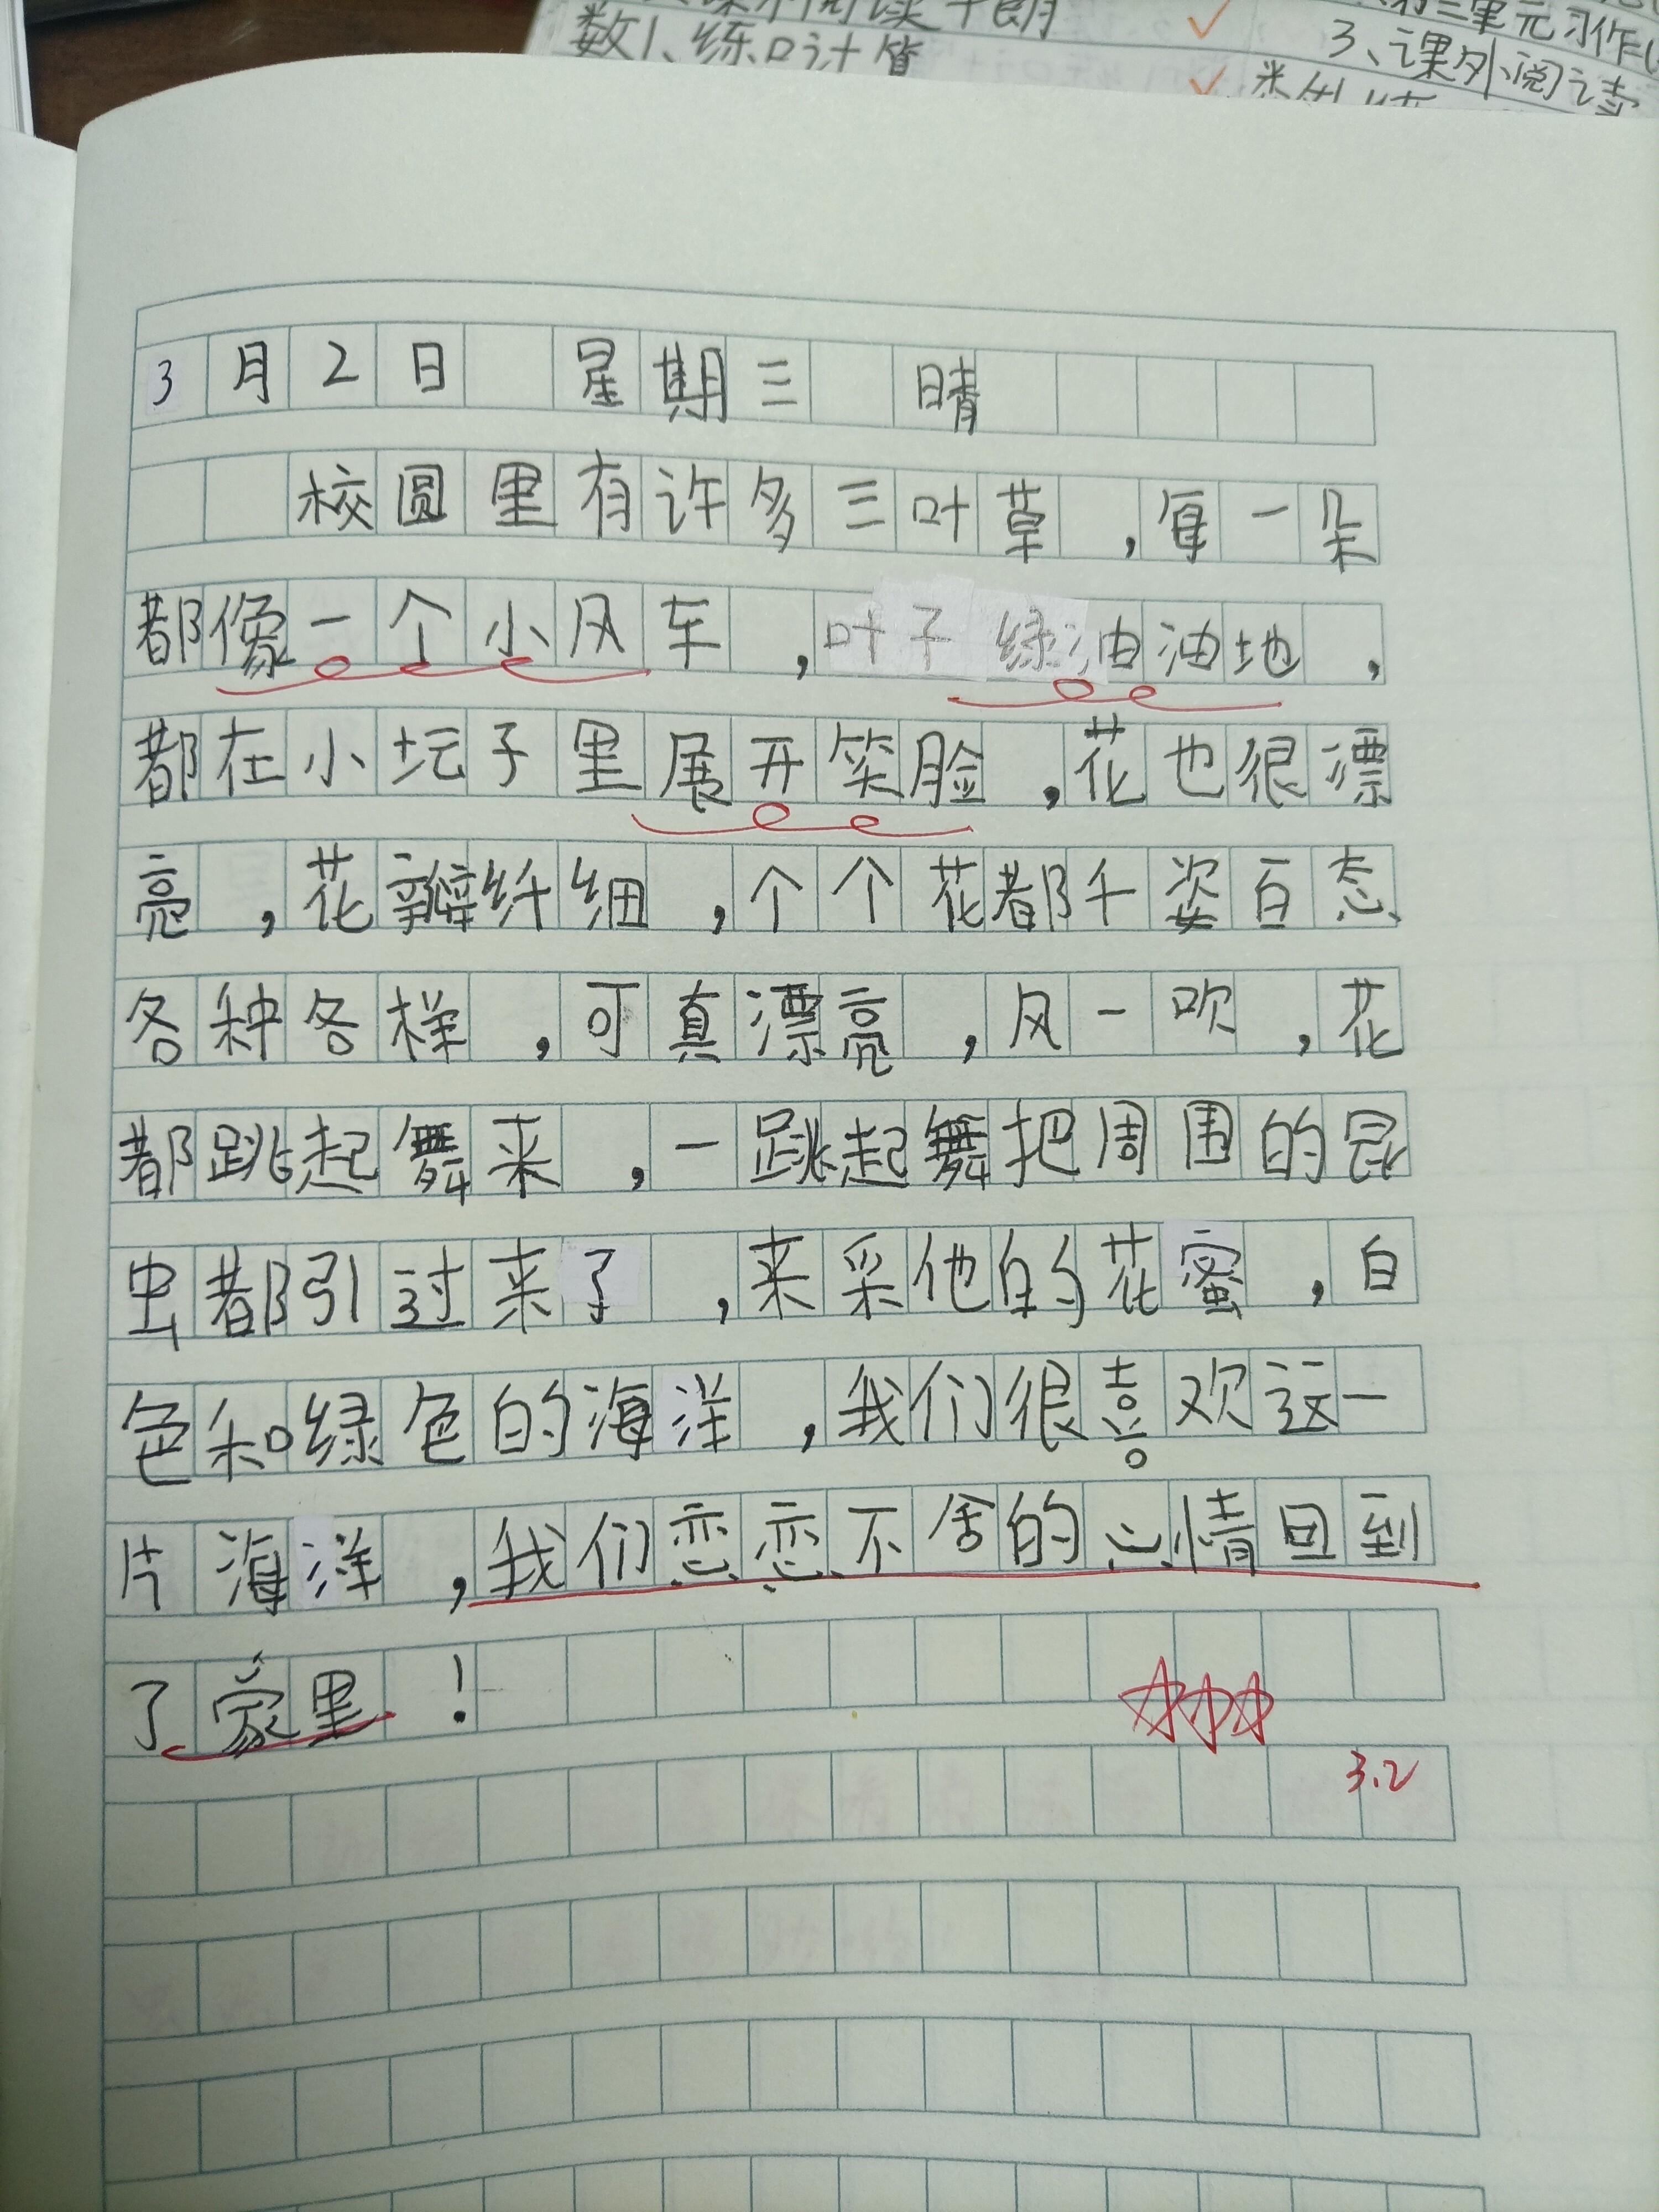 数1、练口计算
3、课外阅读
3月2日 星期三 晴
校圆里有许多三叶草，每一朵
都像一个小风车，叶子绿油油地，
都在小坛子里展开笑脸，花也很漂
亮，花瓣纤细，个个花都千姿百态
各种各样，可真漂亮，风一吹，花
都跳起舞来，一跳起舞把周围的昆
虫都引过来了，来采他的花蜜，白
色和绿色的海洋，我们很喜欢这一
片海洋，我们恋恋不舍的心情回到
了家里！
3.2